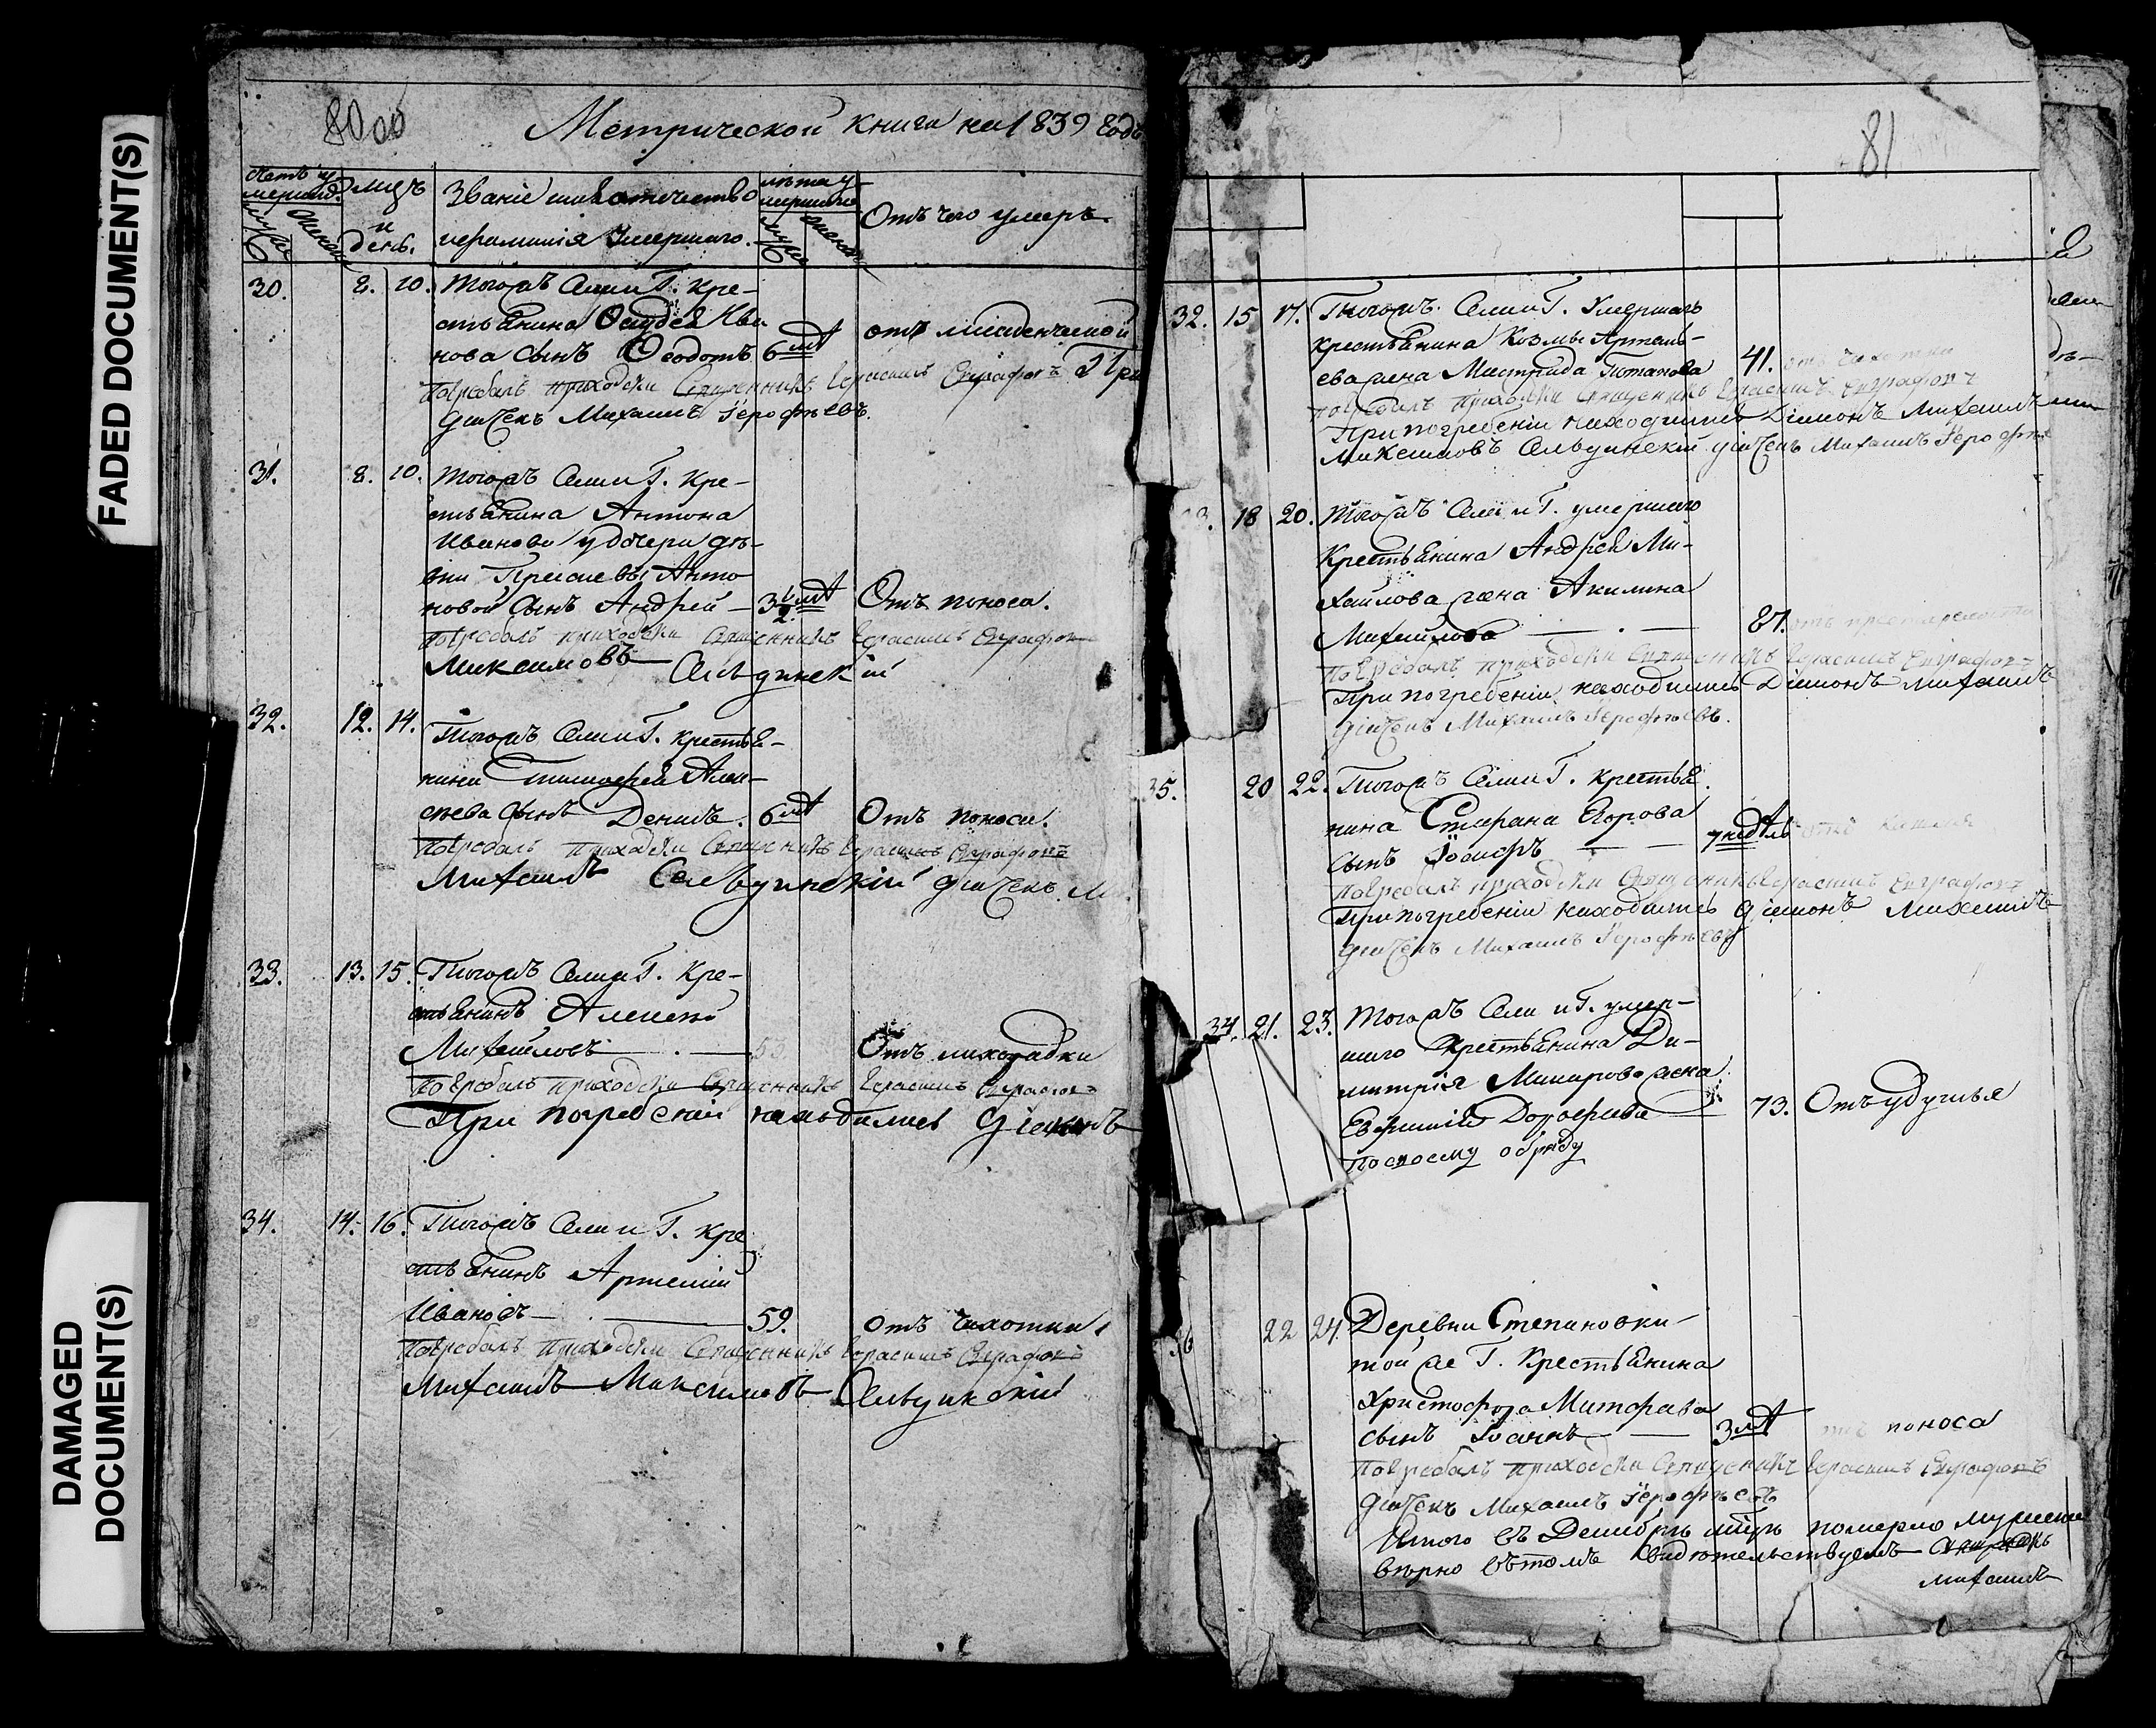 FADED DOCUMENT(S)
DAMAGED
DOCUMENT(S)
80
Метрической книги на 1839 годъ
мцъ
и
день.
Званіе имя отчество
и фамилія Умершаго.
лѣта у-
мершаго
Отъ чего умеръ.
30. 8. 10. Тогожъ Села и Г. Кре-
стьянина Ива-
нова сынъ Ѳеодотъ 6 лѣт отъ младенческой
погребалъ приходски Священникъ Герасимъ Евграфовъ При
дячекъ Михаилъ Герофѣевъ.
31. 8. 10. Тогожъ Села и Г. Кре-
стьянина Антона
Иванова у дочери дѣ-
вки Анто-
новой сынъ Андрей 3 1/2 лѣт Отъ поноса.
погребалъ приходски Священникъ Герасимъ Евграфовъ
Максимовъ Сельдинскій
32. 12. 14. Тогожъ Села и Г. крестья-
нина Тимофея Алек-
сѣева сынъ Денисъ. 6 лѣт Отъ поноса.
погребалъ приходски Священникъ Герасимъ Евграфовъ
Михаилъ дячекъ
33. 13. 15. Тогожъ Села и Г. Кре-
стьянинъ Алексей
Михайловъ Отъ лихорадки
погребалъ приходски Священникъ Герасимъ Евграфовъ
При погребеніи находились діаконъ
34. 14. 16. Тогожъ Села и Г. Кре-
стьянинъ Арсеній
Ивановъ 59. отъ чахотки
погребалъ приходски Священникъ Герасимъ Евграфовъ
Михаилъ Максимовъ
81
32. 15 17. Тогожъ Села и Г. Умершаго
крестьянина Козмы Артемь-
ева жена Потапова 41. отъ чахотки
погребалъ приходски Священникъ Герасимъ Евграфовъ
При погребеніи находились Діаконъ Михаилъ
Максимовъ дячекъ Михаилъ Герофѣ
18 20. Тогожъ Села и Г. умершаго
Крестьянина Андрея Ми-
хайлова жена Акилина
Михайлова 87. отъ престарелости
погребалъ приходски Священникъ Герасимъ Евграфовъ
При погребеніи находились Діаконъ Михаилъ
дячекъ Михаилъ Герофѣевъ.
35. 20 22. Тогожъ Села и Г. крестья
нина Стефана Егорова
сынъ Іосифъ 7 недѣль отъ кашля
погребалъ приходски Священникъ Герасимъ Евграфовъ
При погребеніи находились діаконъ Михаилъ
дячекъ Михаилъ Герофѣевъ
34. 21. 23. Тогожъ Села и Г. умер-
шаго Крестьянина Ди-
митрія Макарова жена
Евфимія Дорофеева 73. Отъ удушья
по своему обряду
22 24. Деревни Степановки
той же Г. Крестьянина
Христофора Митофава
сынъ Іоаннъ 3 лѣт поноса
погребалъ приходски Священникъ Герасимъ Евграфовъ
дячекъ Михаилъ Герофѣевъ
Итого въ Декабрѣ мцѣ померло мужеска
вѣрно въ томъ свидѣтельствуемъ
Михаилъ